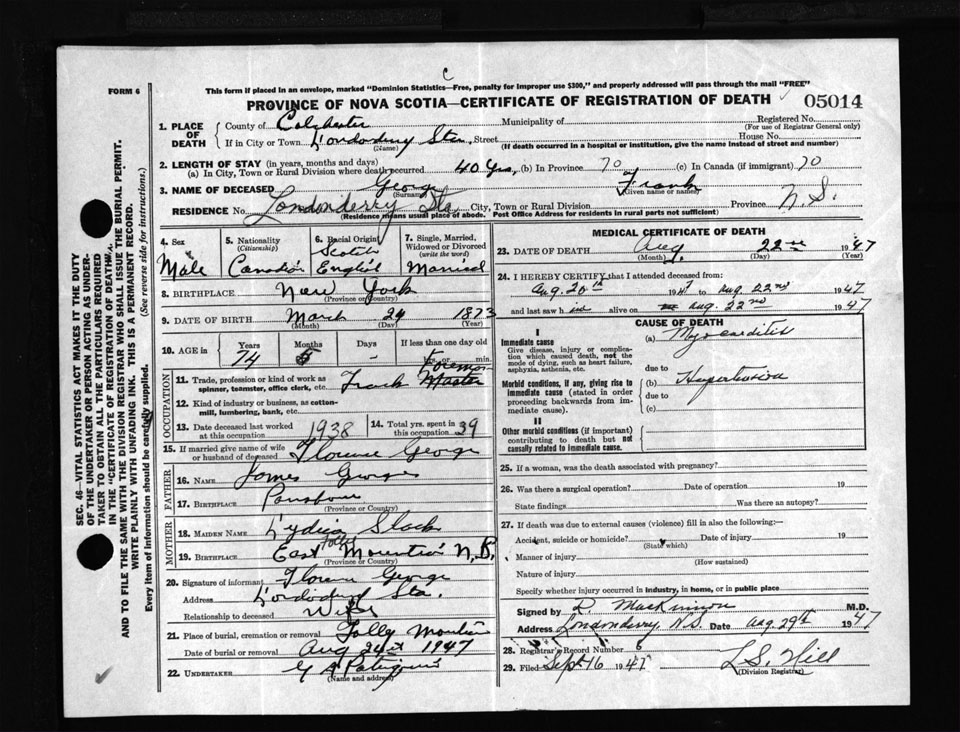 C
FORM 6
This form if placed in an envelope, marked "Dominion Statistics—Free, penalty for improper use $300," and properly addressed will pass through the mail "FREE"
PROVINCE OF NOVA SCOTIA—CERTIFICATE OF REGISTRATION OF DEATH 05014
1. PLACE OF DEATH County of Colchester Municipality of Registered No. (For use of Registrar General only)
If in City or Town Londonderry Sta. Street House No.
(Name) (If death occurred in a hospital or institution, give the name instead of street and number)
2. LENGTH OF STAY (in years, months and days)
(a) In City, Town or Rural Division where death occurred 40 Yrs, (b) In Province 70 (c) In Canada (if immigrant) 70
3. NAME OF DECEASED George (Surname) Frank (Given name or names)
RESIDENCE No. Londonderry Sta. City, Town or Rural Division Province N.S.
(Residence means usual place of abode. Post Office Address for residents in rural parts not sufficient)
4. Sex Male
5. Nationality (Citizenship) Canadian
6. Racial Origin Scotch English
7. Single, Married, Widowed or Divorced (write the word) Married
8. BIRTHPLACE New York
(Province or Country)
9. DATE OF BIRTH March 24 1873
(Month) (Day) (Year)
10. AGE in Years Months Days If less than one day old
74 5 - hrs. or min.
OCCUPATION
11. Trade, profession or kind of work as spinner, teamster, office clerk, etc. Track Foreman Master
12. Kind of industry or business, as cotton-mill, lumbering, bank, etc.
13. Date deceased last worked at this occupation 1938
14. Total yrs. spent in this occupation 39
15. If married give name of wife or husband of deceased Florence George
FATHER
16. NAME James George
17. BIRTHPLACE
MOTHER
18. MAIDEN NAME Lydia Slack
19. BIRTHPLACE East Folly Mountain N.S.
(Province or Country)
20. Signature of informant Florence George
Address Londonderry Sta.
Relationship to deceased Wife
21. Place of burial, cremation or removal Folly Mountain
Date of burial or removal Aug 24 1947
22. UNDERTAKER
(Name and address)
MEDICAL CERTIFICATE OF DEATH
23. DATE OF DEATH Aug. 22nd 1947
(Month) (Day) (Year)
24. I HEREBY CERTIFY that I attended deceased from:
Aug. 20th 1947 to Aug. 22nd 1947
and last saw him alive on Aug. 22nd 1947
CAUSE OF DEATH
I
Immediate cause (a) Myocarditis
Give disease, injury or complication which caused death, not the mode of dying, such as heart failure, asphyxia, asthenia, etc.
due to
Morbid conditions, if any, giving rise to immediate cause (stated in order proceeding backwards from immediate cause). (b) Hypertension
due to
(c)
II
Other morbid conditions (if important) contributing to death but not causally related to immediate cause.
25. If a woman, was the death associated with pregnancy?
26. Was there a surgical operation? Date of operation 19
State findings Was there an autopsy?
27. If death was due to external causes (violence) fill in also the following:—
Accident, suicide or homicide? (State which) Date of injury 19
Manner of injury
(How sustained)
Nature of injury
Specify whether injury occurred in industry, in home, or in public place
Signed by D. MacKinnon M.D.
Address Londonderry N.S. Date Aug. 29th 1947
28. Registrar's Record Number 6
29. Filed Sept 16 1947 L.S. Hill
(Division Registrar)
SEC. 46—VITAL STATISTICS ACT MAKES IT THE DUTY
OF THE UNDERTAKER OR PERSON ACTING AS UNDERTAKER TO OBTAIN ALL THE PARTICULARS REQUIRED
IN THE "CERTIFICATE OF REGISTRATION OF DEATH"
AND TO FILE THE SAME WITH THE DIVISION REGISTRAR WHO SHALL ISSUE THE BURIAL PERMIT.
WRITE PLAINLY WITH UNFADING INK. THIS IS A PERMANENT RECORD.
Every item of information should be carefully supplied. (See reverse side for instructions.)